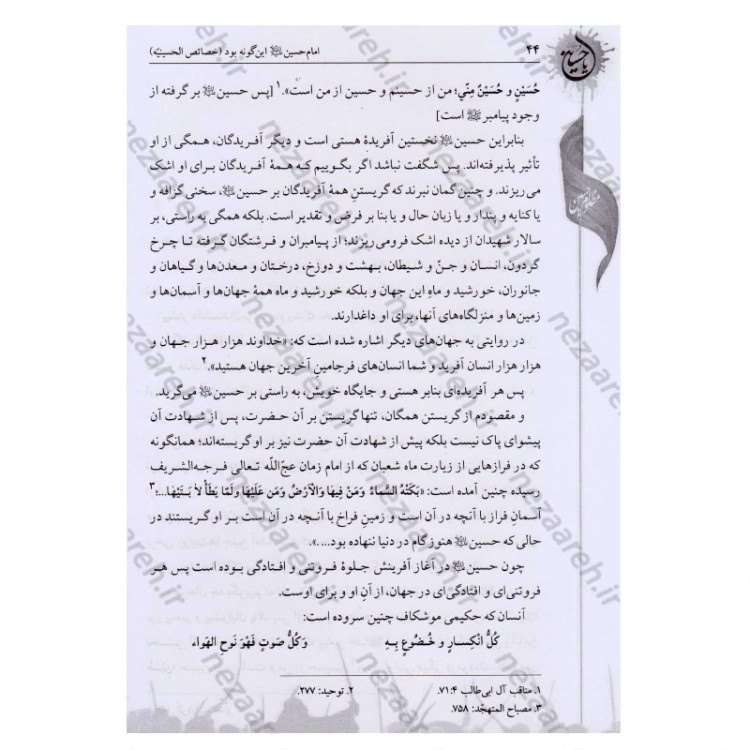 ۴۴
امام حسین ﷺ این‌گونه بود (خصائص الحسینیّه)
حُسَیْنٍ و حُسَیْنٌ مِنّي؛ من از حسینم و حسین از من است».۱ [پس حسین ﷺ بر گرفته از
وجود پیامبر ﷺ است]
بنابراین حسین ﷺ نخستین آفریدهٔ هستی است و دیگر آفریدگان، همگی از او
تأثیر پذیرفته‌اند. پس شگفت نباشد اگر بگوییم که همهٔ آفریدگان برای او اشک
می‌ریزند. و چنین گمان نبرند که گریستنِ همهٔ آفریدگان بر حسین ﷺ، سخنی گزافه و
یا کنایه و پندار و یا زبان حال و یا بنا بر فرض و تقدیر است. بلکه همگی به راستی، بر
سالار شهیدان از دیده اشک فرومی‌ریزند؛ از پیامبران و فرشتگان گرفته تا چرخ
گردون، انسان و جنّ و شیطان، بهشت و دوزخ، درختان و معدن‌ها و گیاهان و
جانوران، خورشید و ماهِ این جهان و بلکه خورشید و ماه همهٔ جهان‌ها و آسمان‌ها و
زمین‌ها و منزلگاه‌های آنها، برای او داغدارند.
در روایتی به جهان‌های دیگر اشاره شده است که: «خداوند هزار هزار جهان و
هزار هزار انسان آفرید و شما انسان‌های فرجامینِ آخرین جهان هستید».۲
پس هر آفریده‌ای بنابر هستی و جایگاه خویش، به راستی بر حسین ﷺ می‌گرید.
و مقصودم از گریستن همگان، تنها گریستن بر آن حضرت، پس از شهادت آن
پیشوای پاک نیست بلکه پیش از شهادت آن حضرت نیز بر او گریسته‌اند؛ همانگونه
که در فرازهایی از زیارت ماه شعبان که از امام زمان عجّ‌اللّه تعالی فرجه‌الشریف
رسیده چنین آمده است: «بَکَتْهُ السَّماءُ وَمَنْ فیها وَالْاَرْضُ وَمَن عَلَیْها وَلَمّا یَطَأْ لاٰبَتَیْها...؛۳
آسمان فراز با آنچه در آن است و زمینِ فراخ با آنچه در آن است بر او گریستند در
حالی که حسین ﷺ هنوز گام در دنیا ننهاده بود....».
چون حسین ﷺ در آغاز آفرینش جلوهٔ فروتنی و افتادگی بوده است پس هر
فروتنی‌ای و افتادگی‌ای در جهان، از آنِ او و برای اوست.
آنسان که حکیمی موشکاف چنین سروده است:
کُلُّ انْکِسارٍ و خُضُوعٍ بِهِ وَکُلُّ صَوتٍ فَهْوَ نَوحِ الهَواء
۱. مناقب آل ابی‌طالب ۴:۷۱. ۲. توحید: ۲۷۷.
۳. مصباح المتهجّد: ۷۵۸.
nezaareh.ir